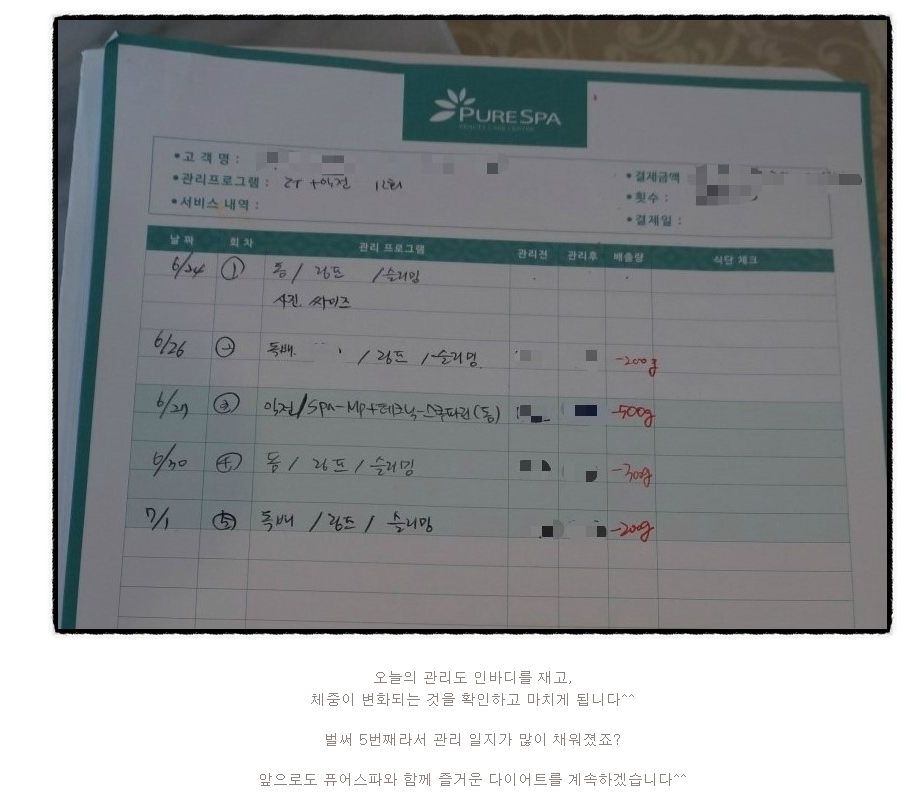 PURESPA
•고 객 명 :
•관리프로그램 : 12회
•서비스 내역 :
•결제금액
•횟수 :
•결제일 :
날 짜 회 차 관리 프로그램 관리전 관리후 배출량 식단 체크
6/24 ① 등 / 림프 / 슬리밍
사진. 싸이즈
6/26 ② 독배. / 림프 / 슬리밍 -200g
6/27 ③ /Spa-Mp+테크닉- (등) -500g
6/30 ④ 등 / 림프 / 슬리밍 -300g
7/1 ⑤ 독배 / 림프 / 슬리밍 -200g
오늘의 관리도 인바디를 재고,
체중이 변화되는 것을 확인하고 마치게 됩니다^^
벌써 5번째라서 관리 일지가 많이 채워졌죠?
앞으로도 퓨어스파와 함께 즐거운 다이어트를 계속하겠습니다^^